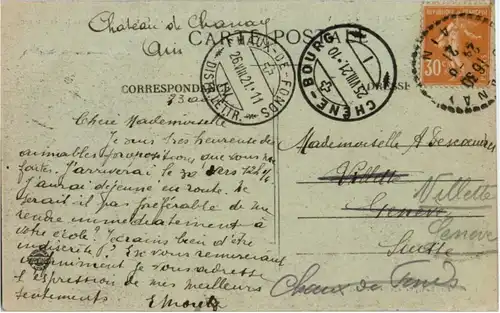 Château de Chanay
Ain
CARTE POSTALE
CORRESPONDANCE
ADRESSE
REPUBLIQUE FRANÇAISE
30c
CHAUX-DE-FONDS
26.VIII.21.-11
DISTR. LETTR.
CHÊNE-BOURG
25.VIII.21.-10
23 août
Chère Mademoiselle
Je suis très heureuse des
aimables propositions que vous me
faites. J'arriverai le 30 vers
J'aurai déjeuné en route. Se
serait il pas préférable de me
rendre immédiatement à
votre école? Je crains bien d'être
indiscrète! En vous remerciant
je vous adresse
l'expression de mes meilleurs
sentiments
E
Mademoiselle A Descoeudres
Villette Villette
Genève Genève
Suisse
Chaux de Fonds